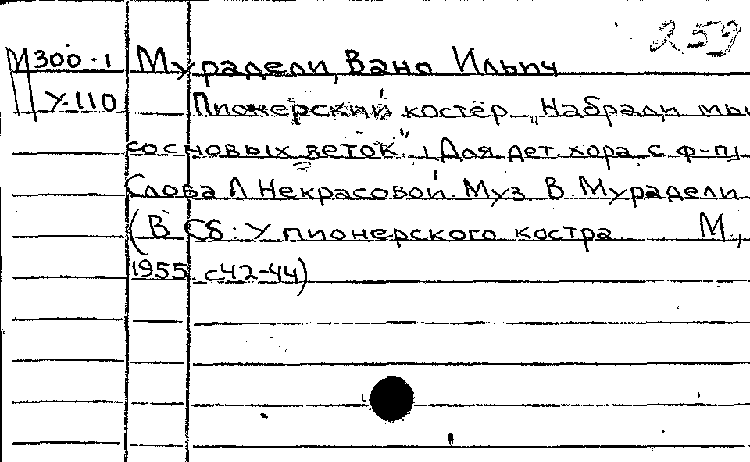 259
М300-1 Мурадели, Вано Ильич
У-110 Пионерский костёр „Набрали мы
сосновых веток". [Для дет хора с ф-п]
Слова Л Некрасовой. Муз В Мурадели
(В Сб: У пионерского костра М.,
1955 с42-44)